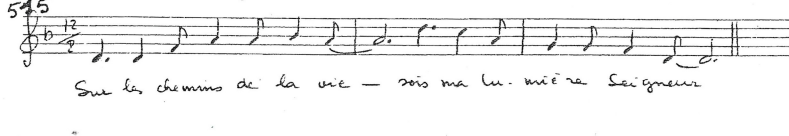 545
12
8
Sur les chemins de la vie — sois ma lu-mière Seigneur